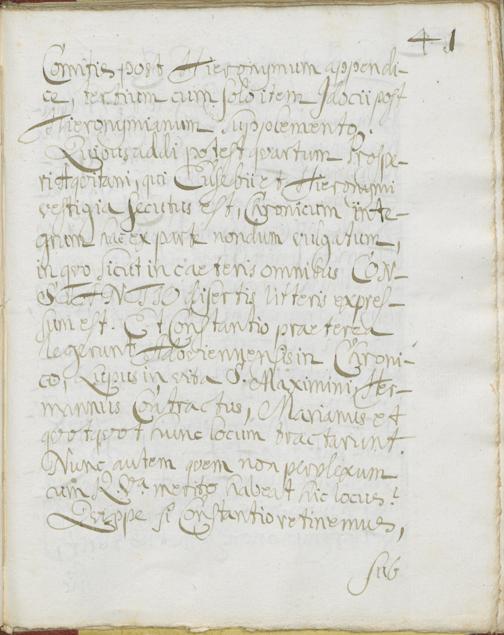 41
Comitis post Hieronymum appendi-
ce, tertium cum solo item Idacii post
Hieronymianum supplemento.
Quibus addi potest quartum Prospe-
ri Aquitani, qui Eusebii et Hieronymi
vestigia secutus est, Chronicum inte-
grum hac ex parte nondum vulgatum,
in quo sicut in caeteris omnibus CON-
STANTIO disertis litteris expres-
sum est. Et Constantio praeterea
legerunt in Chroni-
co, Lupus in vita S. Maximini, Her-
mannus Contractus, Marianus et
quotquot hunc locum tractarunt.
Nunc autem quem non perplexum
cum R. Va. merito habeat hic locus?
Quippe si Constantio retinemus,
sub